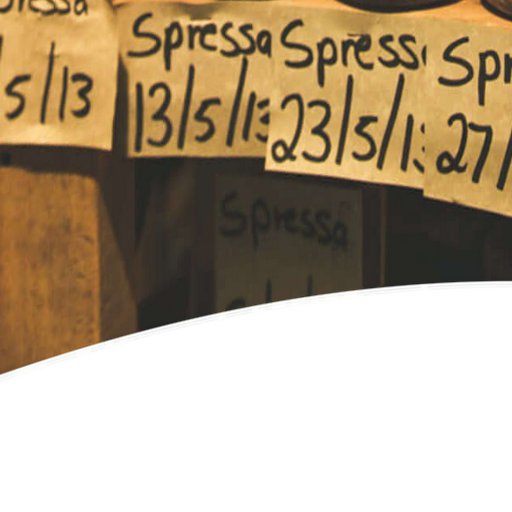 Spressa
5/13
Spressa
13/5/13
Spress
23/5/1
Spr
27/
Spressa